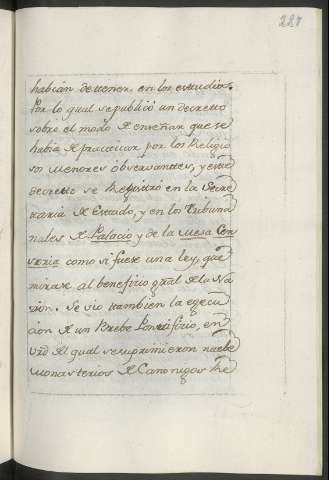 227
habian de tener en los estudios.
Por lo qual se publicó un decreto
sobre el modo de enseñar que se
habia de practicar por los Religio
sos menores observantes, y este
decreto se Registró en la Secre
taria de Estado, y en los Tribuna
nales de Palacio y de la Mesa Cen
soria como si fuese una ley, que
mirase al beneficio gral de la Na
zion. Se vio tambien la egecu
cion de un Brebe Pontificio, en
vrd del qual se suprimieron nuebe
Monasterios de Canonigos Re